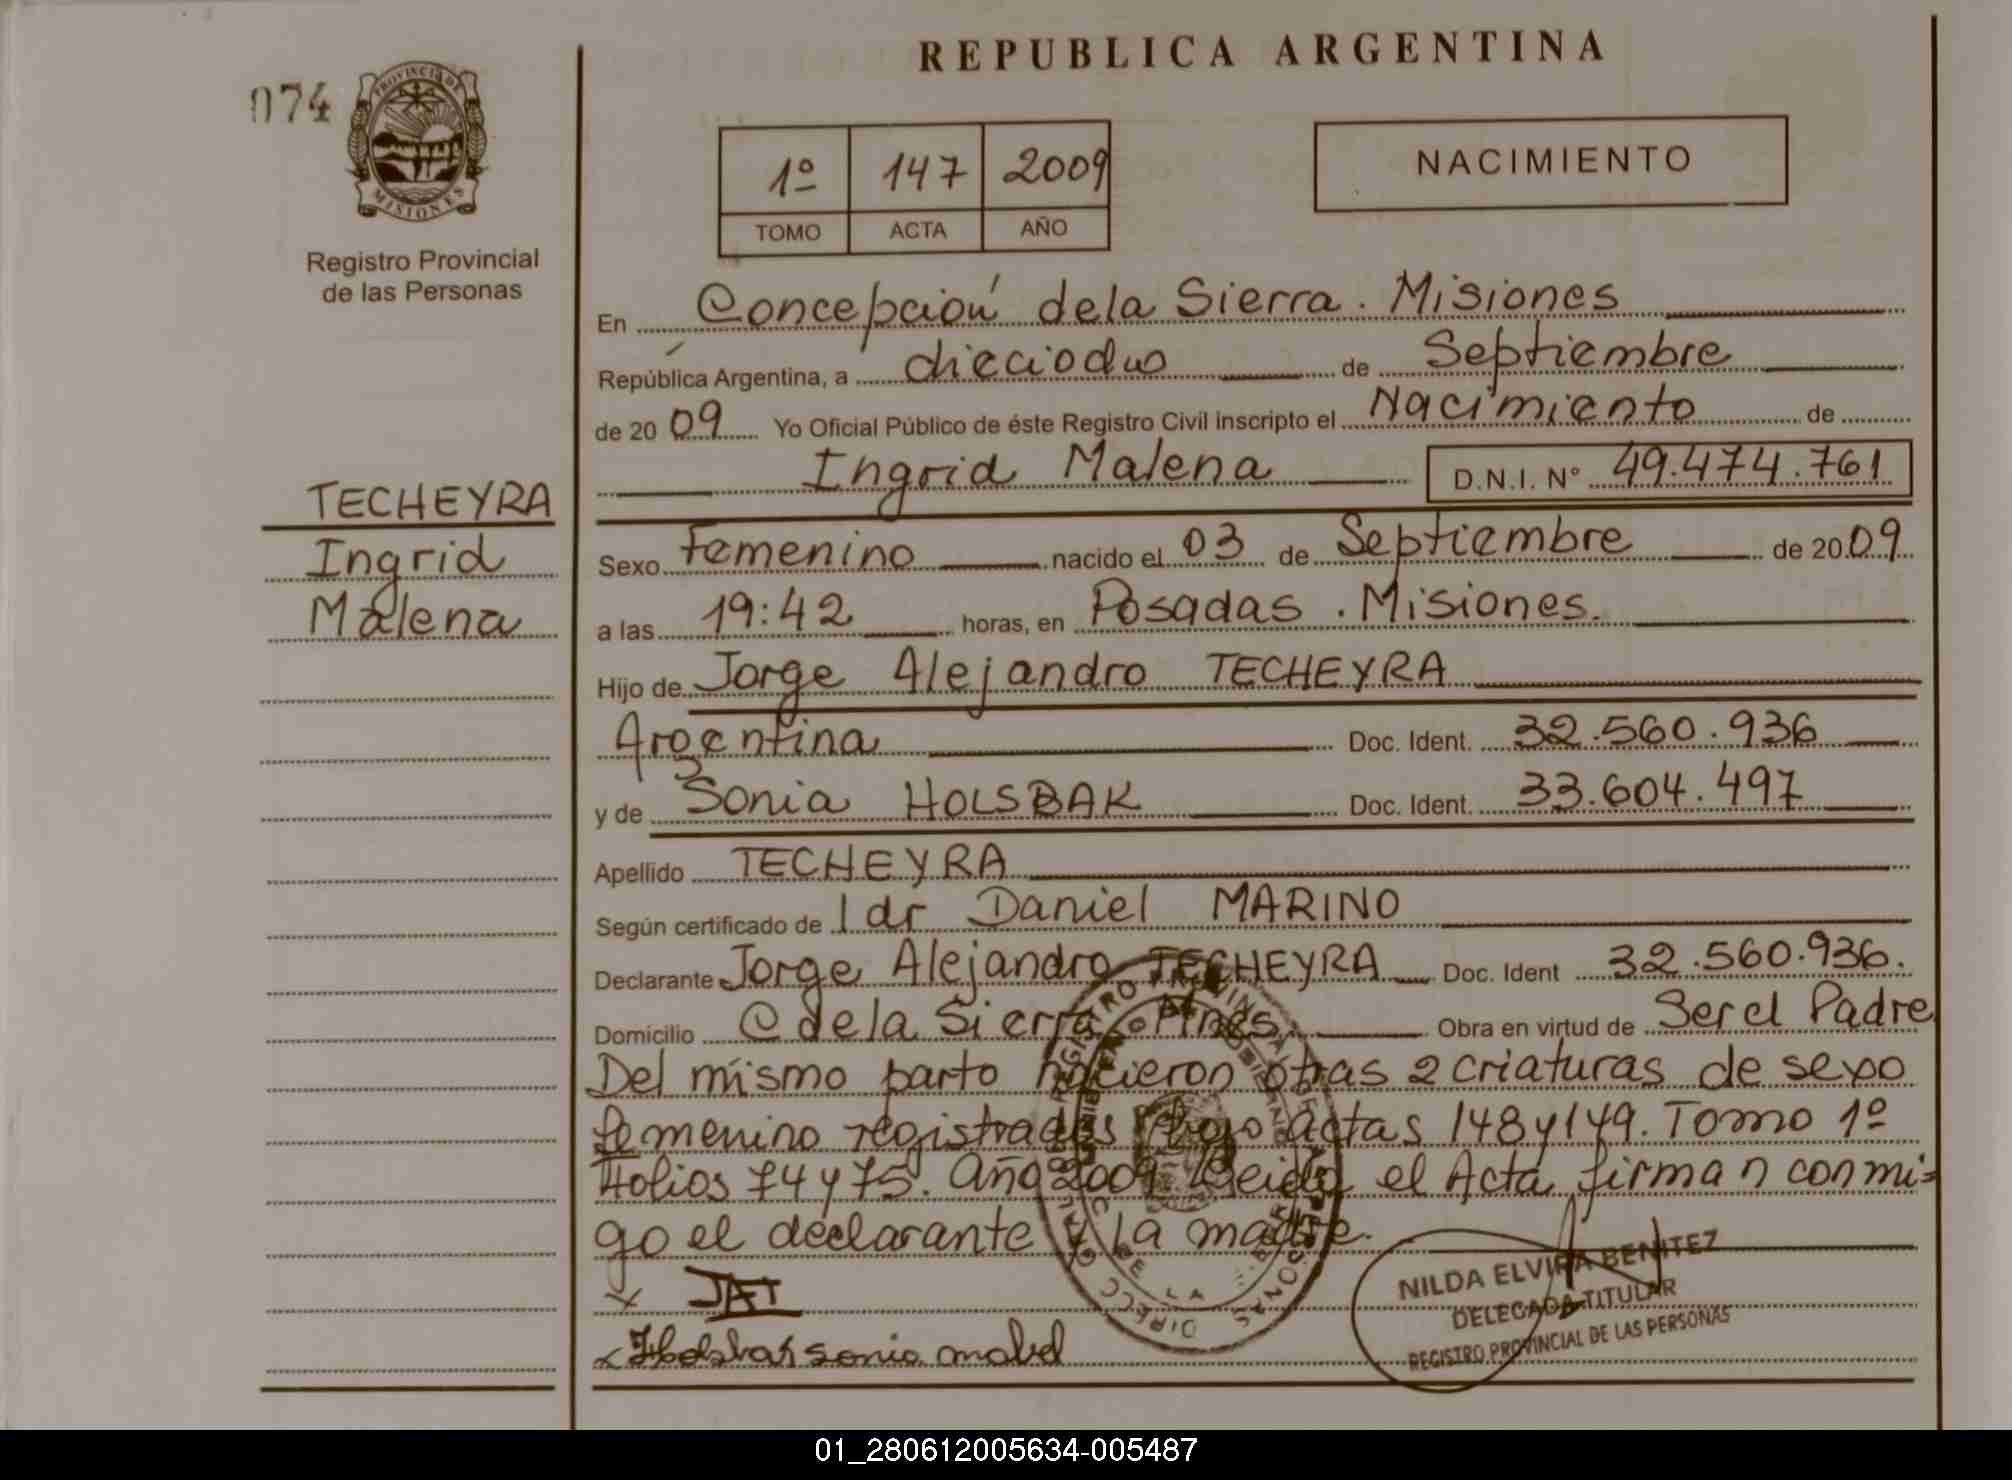 REPUBLICA ARGENTINA
074
PROVINCIA DE
MISIONES
Registro Provincial
de las Personas
1º 147 2009
TOMO ACTA AÑO
NACIMIENTO
En Concepción dela Sierra. Misiones
República Argentina, a dieciocho de Septiembre
de 2009 Yo Oficial Público de éste Registro Civil inscripto el Nacimiento de
Ingrid Malena D.N.I. Nº 49.474.761
TECHEYRA
Ingrid
Malena
Sexo Femenino nacido el 03 de Septiembre de 2009
a las 19:42 horas, en Posadas. Misiones.
Hijo de Jorge Alejandro TECHEYRA
Argentina Doc. Ident. 32.560.936
y de Sonia HOLSBAK Doc. Ident. 33.604.497
Apellido TECHEYRA
Según certificado de l dr Daniel MARINO
Declarante Jorge Alejandro TECHEYRA Doc. Ident 32.560.936.
Domicilio C dela Sierra Mnes. Obra en virtud de Ser el Padre
Del mismo parto nacieron otras 2 criaturas de sexo
femenino registradas bajo actas 148 y 149. Tomo 1º
Folios 74 y 75. Año 2009 Leida el Acta firman conmi-
go el declarante y la madre.
x JAT
x Holsbak sonia mabel
NILDA ELVIRA BENITEZ
DELEGADA TITULAR
REGISTRO PROVINCIAL DE LAS PERSONAS
01_280612005634-005487